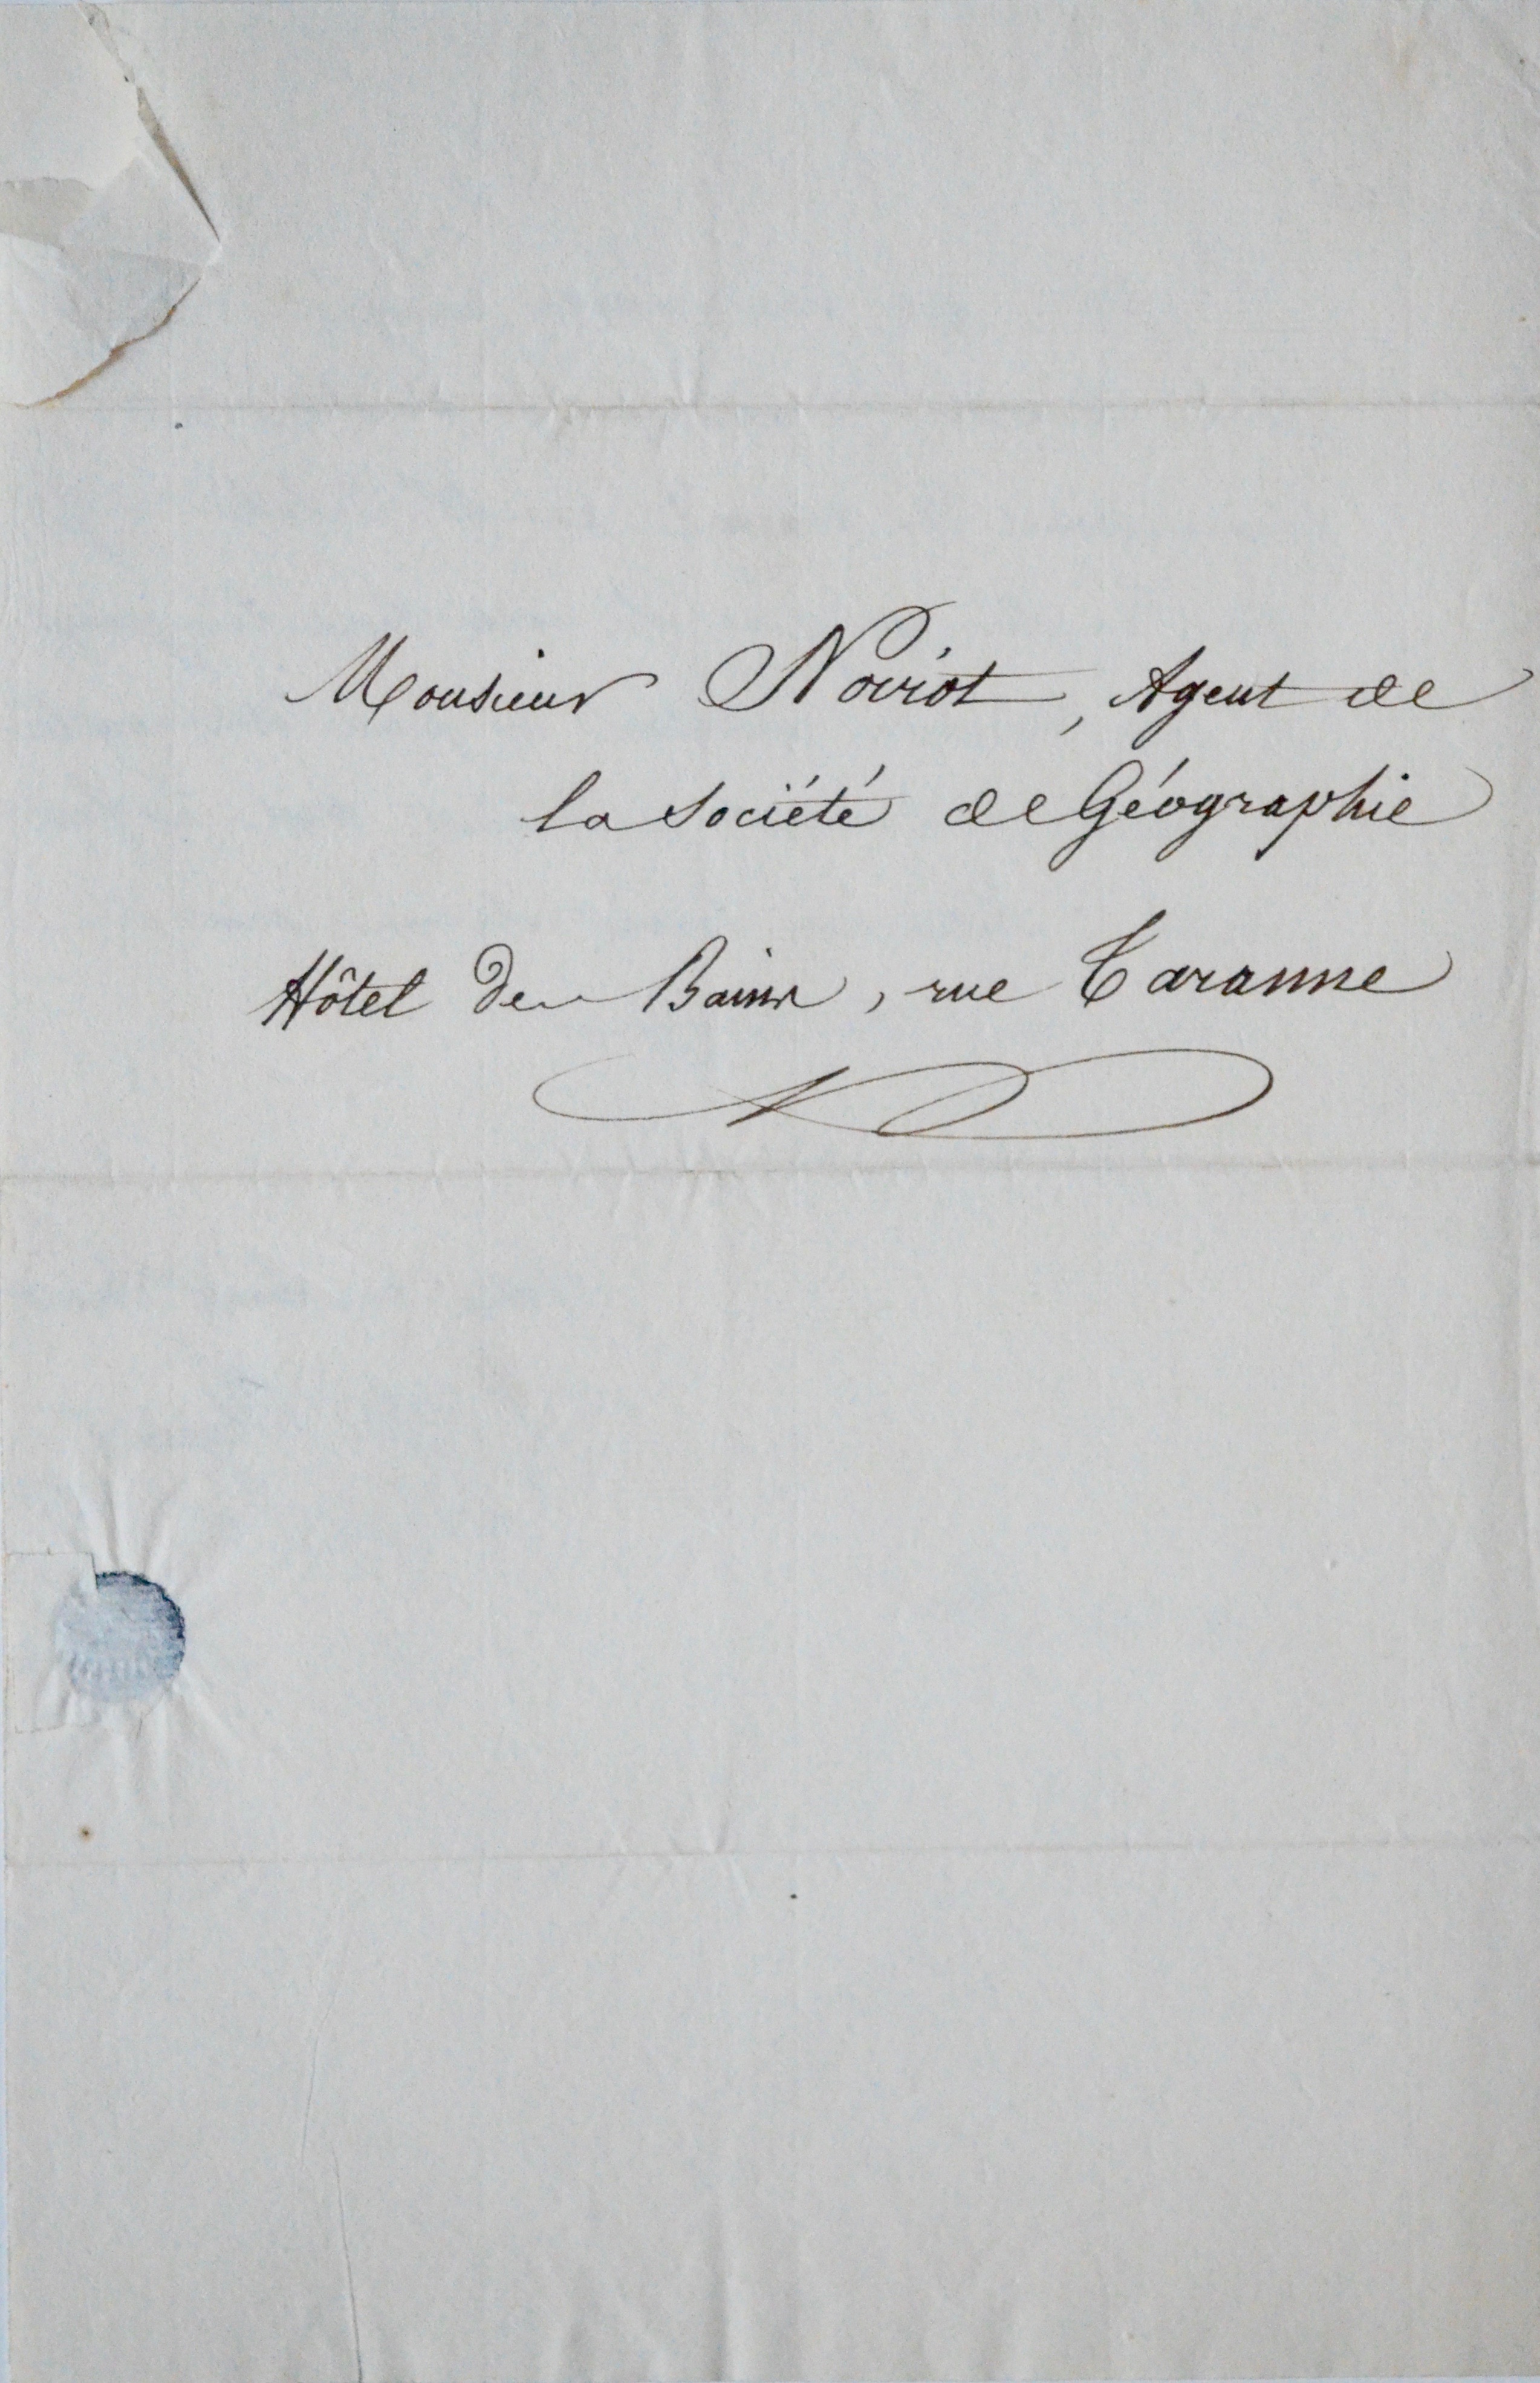 Monsieur Noirot, Agent de
la Société de Géographie
Hôtel des Bains, rue Taranne